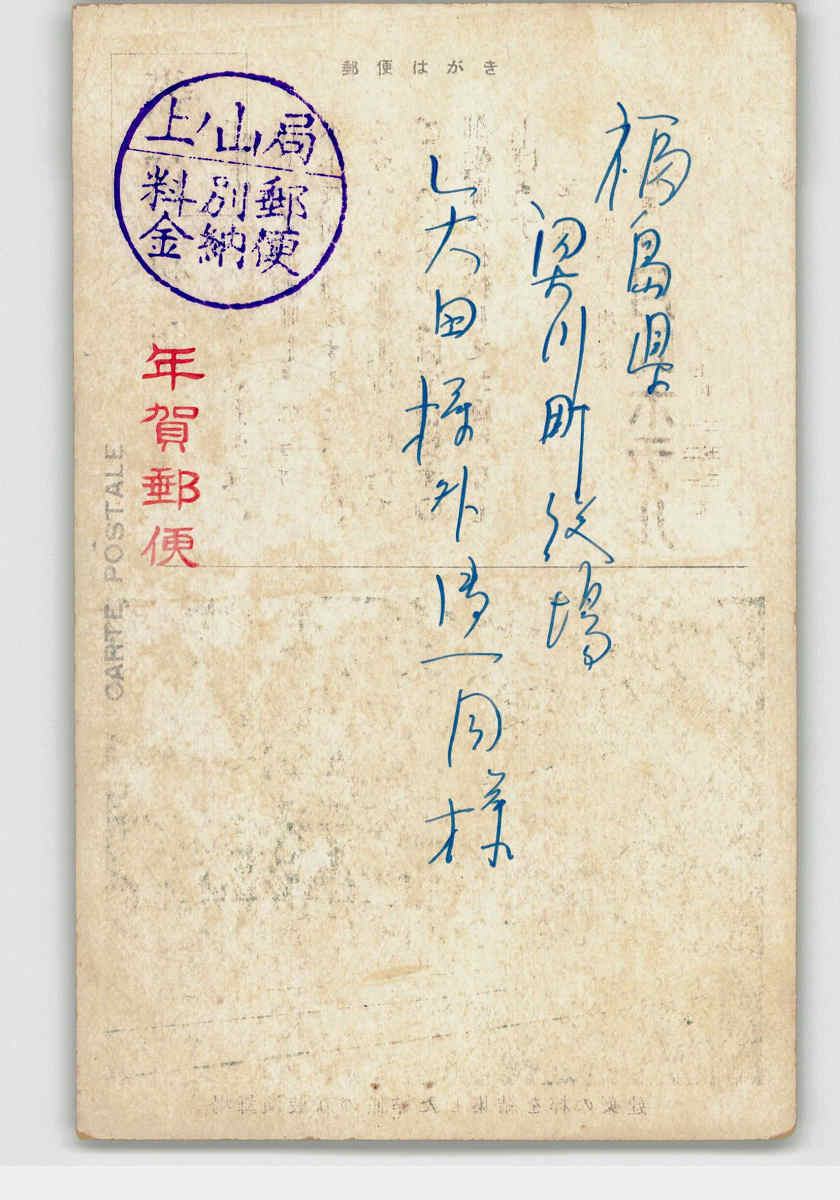 郵便はがき
福島県
梁川町役場
大田様外御一同様
上ノ山局
料金別納郵便
年賀郵便
CARTE POSTALE